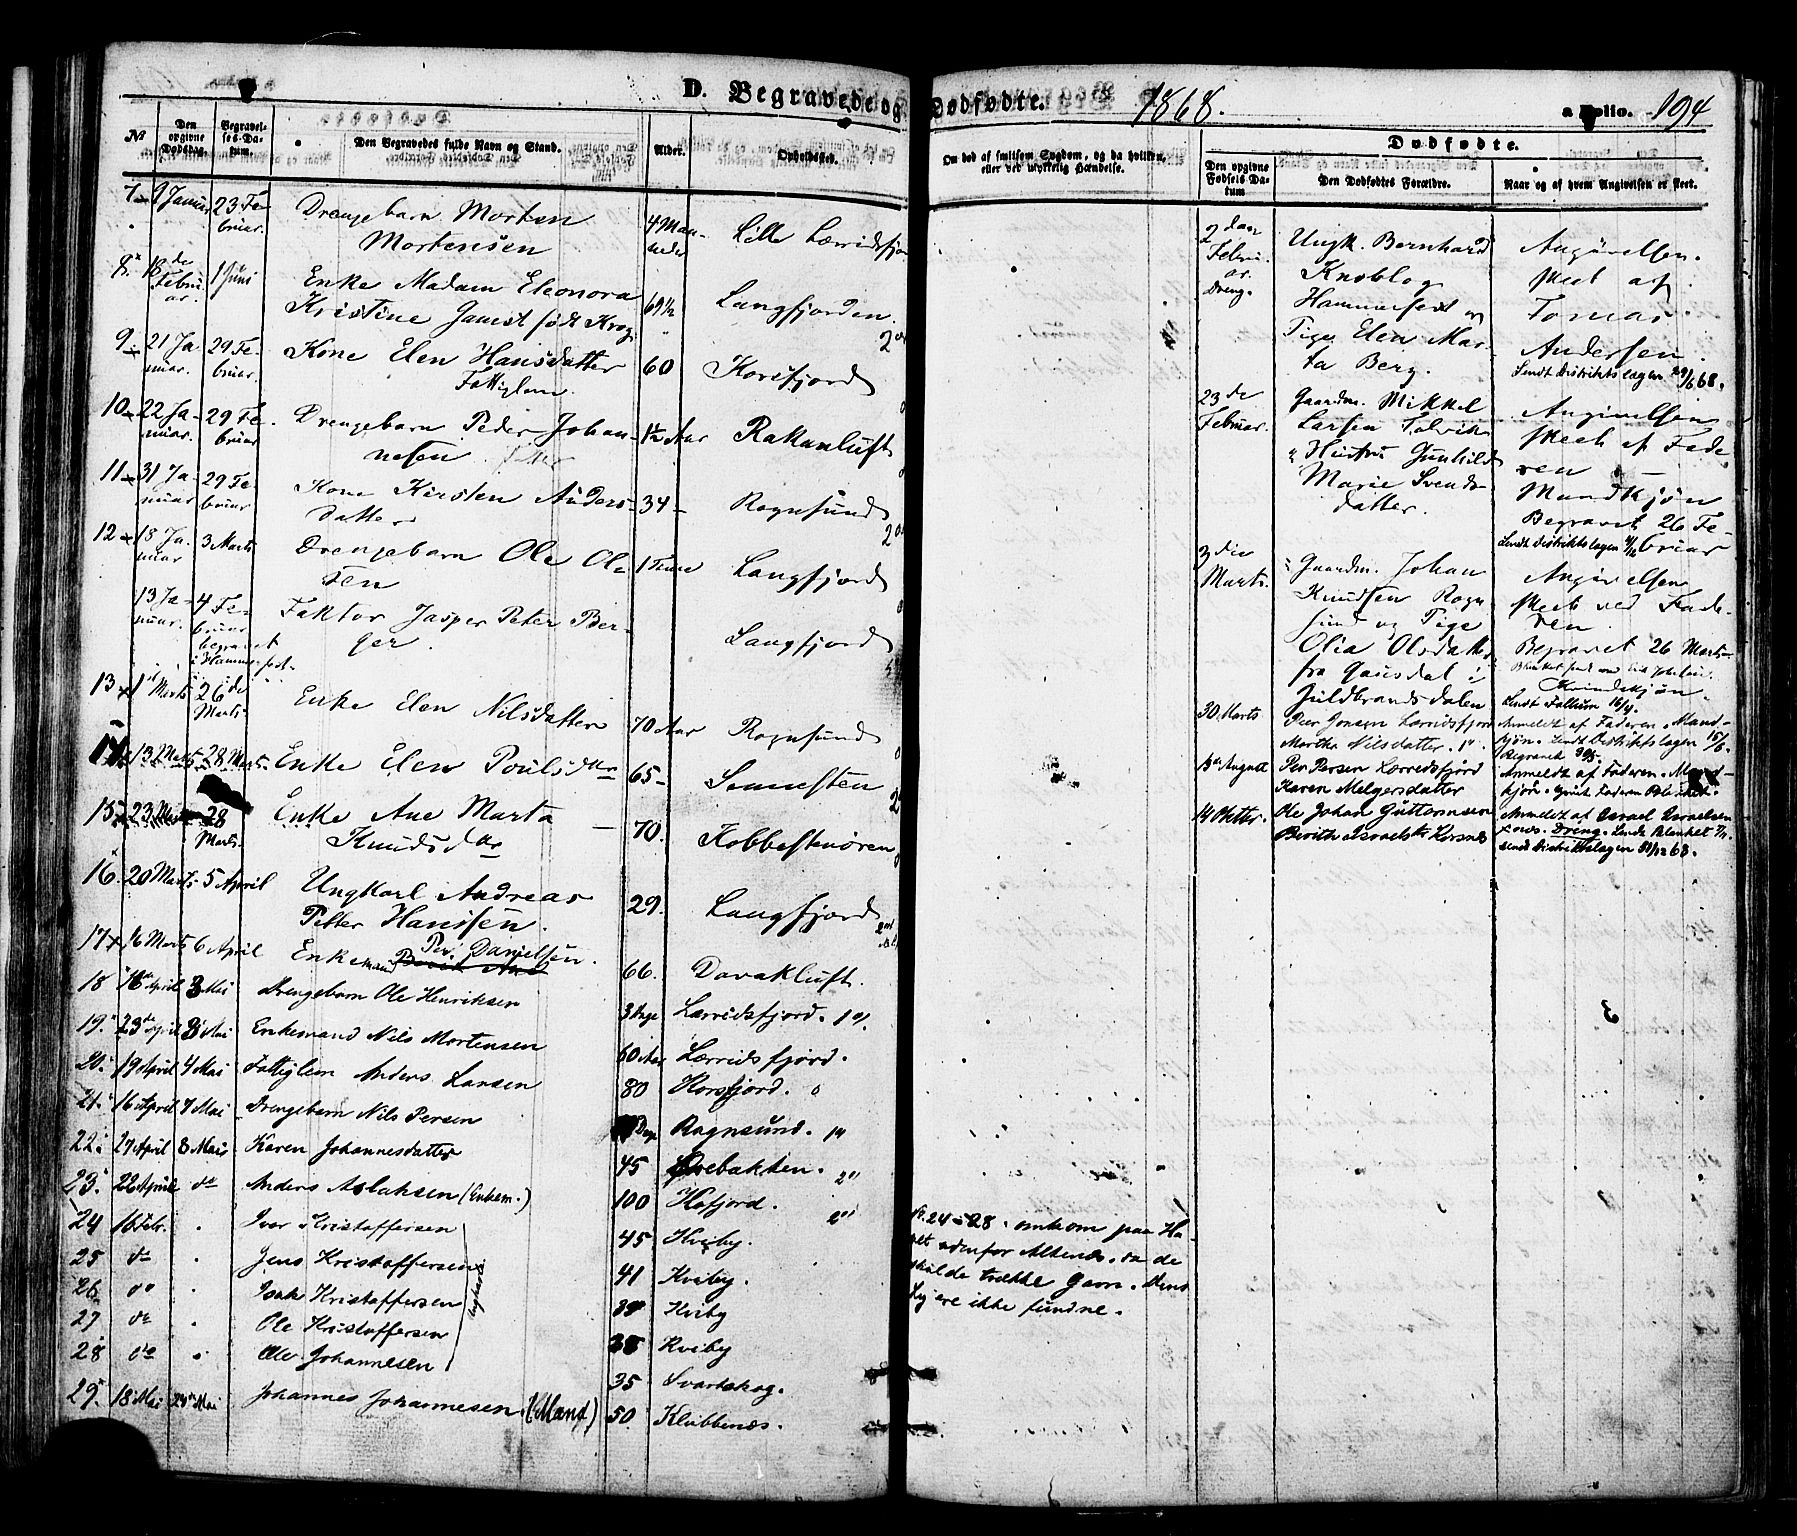 D. Begravede og Dødfødte. 1868. a Folio. 194
№
Den opgivne Dødsdag.
Begravelses-Datum.
Den Begravedes fulde Navn og Stand.
Alder.
Opholdssted.
Om død af smitsom Sygdom, og da hvilken, eller ved ulykkelig Hændelse.
Dødfødte.
Den opgivne Fødsels Datum
Den Dødfødtes Forældre.
Naar og af hvem Angivelsen er skeet.
7 9 Januar 23 Februar. Drengebarn Morten Mortensen 4 Maaneder Lille Lærridsfjord
8. 18de Februar. 1 Juni Enke Madam Eleonora Kristine Jamst født Krog 69½ Langfjorden.
9 21 Januar 29 Februar. Kone Elen Hansdatter Fattiglem. 60 Korsfjord
10 22 Januar. 29 Februar Drengebarn Peder Johannesen 1½ Aar Rakanluft
11 31 Januar 29 Februar Kone Kirsten Andersdatter 34 Rognsund
12 18 Januar 3 Marts Drengebarn Ole Olsen 1 Time Langfjord
13 Januar. 4 Februar begravet i Hammerfest. Faktor Jasper Peter Berger. Langfjord
13 1 Marts 26de Marts Enke Elen Nilsdatter 70 Aar Rognsund
14 13 Marts 28 Marts Enke Elen Poulsdtr 65 Sennesten
15 23 Marts 28 Marts. Enke Ane Marta Knudsdtr 70. Kobbestenøren
16. 20 Marts 5 April Ungkarl Andreas Petter Hanssen. 29. Langfjord
17 16 Marts 6 April Enkemand Per Danielsen. 66. Davakluft.
18 16de April 3 Mai Drengebarn Ole Henriksen 3 Dage Lærridsfjord.
19. 23de April 3 Mai Enkemand Nils Mortensen 60 Aar Lærridsfjord.
20. 19 April 4 Mai Fattiglem Anders Larsen 80 Korsfjord.
21. 16 April 7 Mai Drengebarn Nils Persen Dage Rognsund.
22. 27 April 8 Mai Karen Johannesdatter 45 Ørebakken.
23. 22 April do Anders Aslaksen (Enkem.) 100 Kofjord.
24 16 Febr. Ivar Kristoffersen 45 Kviby.
25 do Jens Kristoffersen 41 Kviby.
26 do Isak Kristoffersen 39 Kviby
27 do Ole Kristoffersen 38 Kviby
28 do Ole Johannesen 35 Svartskog.
29. 18 Mai 24 Mai Johannes Johannesen. (Mand) 50. Klubbenæs.
24-28 omkom paa Havet udenfor Altenæs. da de
skulde trække Garn. Deres
Lig ere ikke fundne.
2 den Februar. Dreng.
Ungk. Bernhard
Knoblog
Hammerfest og
Pige Elen Marta Berg.
Angivelsen
skeet af
Tomas
Andersen.
Sendt Distriktslægen 29/6 68.
23 de Februar.
Gaardm. Mikkel
Larsen Talvik
Hustru Gunhild
Marie Svendsdatter.
Angivelsen
skeet af Faderen
Mandkjøn
Begravet 26 Februar
Sendt Distriktslægen
3 die Marts.
Gaardm. Johan
Knudsen Rognsund og Pige
Olia Olsdatter
fra Gausdal i
Guldbrandsdalen
Angivelsen
skeet ved Faderen.
Begravet 26 Marts
Kvindekjøn.
30. Marts Peer Jonsen Lærridsfjord
Martha Nilsdatter.
Anmeldt af Faderen. Mandkjøn. Sendt Distriktslægen 15/6.
Begravet
August Per Persen Lærridsfjord
Karen Melgersdatter
Anmeldt af Faderen. Mandkjøn.
14 Octbr. Ole Johan Guttormsen
Berith Israelsdtr Korsnes
Anmeldt af Israel Israelsen
Dreng. Sendt Blanket
sendt Distriktslægen 31/12 68.